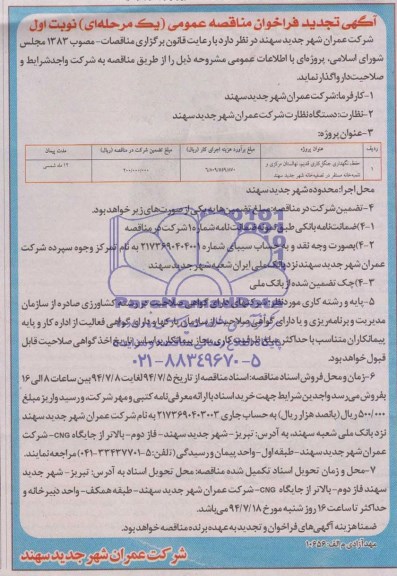 آگهی تجدید فراخوان مناقصه عمومی (یک مرحله‌ای) نوبت اول
شرکت عمران شهر جدید سهند در نظر دارد با رعایت قانون برگزاری مناقصات - مصوب ۱۳۸۳ مجلس
شورای اسلامی، پروژه‌ای با اطلاعات عمومی مشروحه ذیل را از طریق مناقصه به شرکت واجد شرایط و
صلاحیت‌دار واگذار نماید.
۱- کارفرما: شرکت عمران شهر جدید سهند
۲- نظارت: دستگاه نظارت شرکت عمران شهر جدید سهند
۳- عنوان پروژه:
ردیف عنوان پروژه مبلغ برآورد هزینه اجرای کار (ریال) مبلغ تضمین شرکت در مناقصه (ریال) مدت پیمان
۱ حفظ، نگهداری جنگل‌کاری قدیم، نهالستان مرکزی و ۱۲ ماه شمسی
تصفیه‌خانه مستقر در تصفیه‌خانه شهر جدید سهند
محل اجرا: محدوده شهر جدید سهند
۴- تضمین شرکت در مناقصه: مبلغ تضمین‌ها به یکی از صورت‌های زیر خواهد بود.
۴-۱) ضمانت‌نامه بانکی طبق نمونه ضمانت‌نامه شماره ۱ شرکت در مناقصه
۴-۲) بصورت وجه نقد و به حساب سیبای شماره ۲۱۷۳۶۹۰۴۰۴۰۰۱ به نام تمرکز وجوه سپرده شرکت
عمران شهر جدید سهند نزد بانک ملی ایران شعبه شهر جدید سهند
۴-۳) چک تضمین شده از بانک ملی
۵- پایه و رشته کاری مورد نظر: شرکتهای دارای گواهی صلاحیت در رشته کشاورزی صادره از سازمان
مدیریت و برنامه‌ریزی و یا دارای گواهی صلاحیت از سازمان پارکها و یا دارای گواهی فعالیت از اداره کار و پایه
پیمانکاران متناسب با حداکثر مبلغ ظرفیت کاری مجاز پیمانکار براساس تاریخ اخذ گواهی صلاحیت قابل
قبول خواهد بود.
۰۲۱-۸۸۳۴۹۶۷۰-۵
۶- زمان و محل فروش اسناد مناقصه: اسناد مناقصه از تاریخ ۹۴/۷/۵ لغایت ۹۴/۷/۸ بین ساعات ۸ الی ۱۶
بفروش می‌رسد واجدین شرایط جهت خرید اسناد با ارائه معرفی‌نامه کتبی و مهر شرکت، و رسید واریز مبلغ
۵۰۰/۰۰۰ ریال (پانصد هزار ریال) به حساب جاری ۲۱۷۳۶۹۰۴۰۳۰۰۳ به نام شرکت عمران شهر جدید سهند
نزد بانک ملی شعبه سهند، به آدرس: تبریز - شهر جدید سهند - فاز دوم - بالاتر از جایگاه CNG - شرکت
عمران شهر جدید سهند - طبقه اول - واحد پیمان و رسیدگی (تلفن: ۵-۳۳۴۳۷۷۰۱-۰۴۱) مراجعه نمایند.
۷- محل و زمان تحویل اسناد تکمیل شده مناقصه: محل تحویل اسناد به آدرس: تبریز - شهر جدید
سهند فاز دوم - بالاتر از جایگاه CNG - شرکت عمران شهر جدید سهند - طبقه همکف - واحد دبیرخانه و
حداکثر تا ساعت ۱۶ روز شنبه مورخ ۹۴/۷/۱۸ می‌باشد.
ضمنا هزینه آگهی‌های فراخوان و تجدید به عهده برنده مناقصه خواهد بود.
مهد آزادی م الف: ۱۰۴۵۴
شرکت عمران شهر جدید سهند